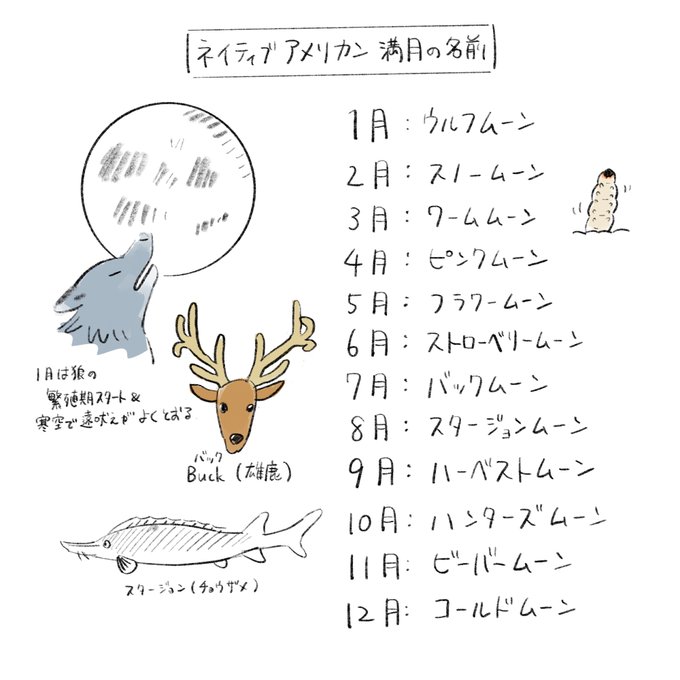 ネイティブアメリカン 満月の名前
1月：ウルフムーン
2月：スノームーン
3月：ワームムーン
4月：ピンクムーン
5月：フラワームーン
6月：ストローベリームーン
7月：バックムーン
8月：スタージョンムーン
9月：ハーベストムーン
10月：ハンターズムーン
11月：ビーバームーン
12月：コールドムーン
1月は狼の
繁殖期スタート&
寒空で遠吠えがよくとおる
バック
Buck (雄鹿)
スタージョン(チョウザメ)